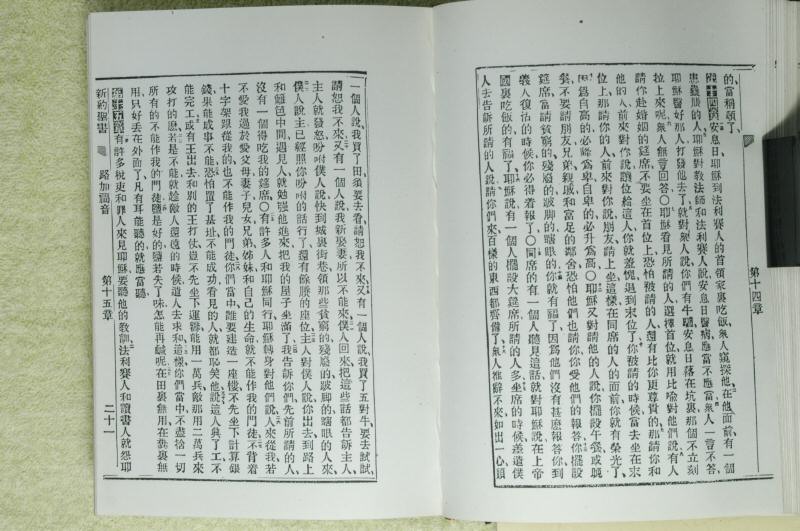 的當稱頌了
第十四章
安息日耶穌到法利賽人的首領家裏吃飯衆人窺探他在他面前有一個
患蠱脹的人耶穌對教法師和法利賽人說安息日醫病應當不應當衆人一言不答
耶穌醫好那人打發他去了就對衆人說你們有牛驢安息日落在坑裏那個不立刻
拉上來呢衆人無言可回答〇耶穌看見所請的人選擇首位就用比喩對他們說有人
請你赴婚姻的筵席不要坐在首位上恐怕被請的人還有比你更尊貴的那請你和
他的人前來對你說讓位給這人你就羞愧退到末位了你被請的時候當去坐在末
位上那請你的人前來對你說朋友請上坐這樣在同席的人的面前你就有榮光了
因爲自高的必降爲卑自卑的必升爲高〇耶穌又對請他的人說你擺設午餐或晚
餐不要請朋友兄弟親戚和富足的鄰舍恐怕他們也請你你受他們的報答你擺設
筵席當請貧窮的殘廢的跛脚的瞎眼的你就有福了因爲他們沒有甚麼報答你到
義人復活的時候你必得着報了〇同席的有一個人聽見這話就對耶穌說在上帝
國裏吃飯的有福了耶穌說有一個人擺設大筵席所請的人多坐席的時候差遣僕
人去告訴所請的人說請你們來百樣的東西都齊備了衆人推辭不來如出一心頭
一個人說我買了田須要去看請恕我不來又有一個人說我買了五對牛要去試試
請恕我不來又有一個人說我新娶妻所以不能來僕人回來把這些話都告訴主人
主人就發怒吩咐僕人說快到城裏街巷領那些貧窮的殘廢的跛脚的瞎眼的人來
僕人說主已經照你吩咐的話行了還有餘賸的座位主人對僕人說你出去到路上
和籬笆中間遇見人就勉强他進來把我的屋子坐滿了我告訴你們先前所請的人
沒有一個得吃我的筵席〇有許多人和耶穌同行耶穌轉身對他們說人來從我若
不愛我過於愛父母妻子兒女兄弟姊妹和自己的生命就不能作我的門徒不背着
十字架跟從我的也不能作我的門徒你們當中誰要建造一座樓不先坐下計算銀
錢果能成事不能恐怕置了基址不能成功看見的人就都恥笑他說這人興了工不
能完工或有王出去和別的王打仗豈不先坐下運籌能用一萬兵敵那用二萬兵來
攻打的麽若是不能就趁敵人還遠的時候遣人去求和這樣你們當中不盡捨一切
所有的不能作我的門徒鹽是好的鹽若失了味怎能再鹹呢在田裏無用在糞裏無
用只好丟在外面了凡有耳能聽的就應當聽
第十五章有許多稅吏和罪人來見耶穌要聽他的教訓法利賽人和讀書人就怨耶
新約聖書
路加福音
第十五章
二十一